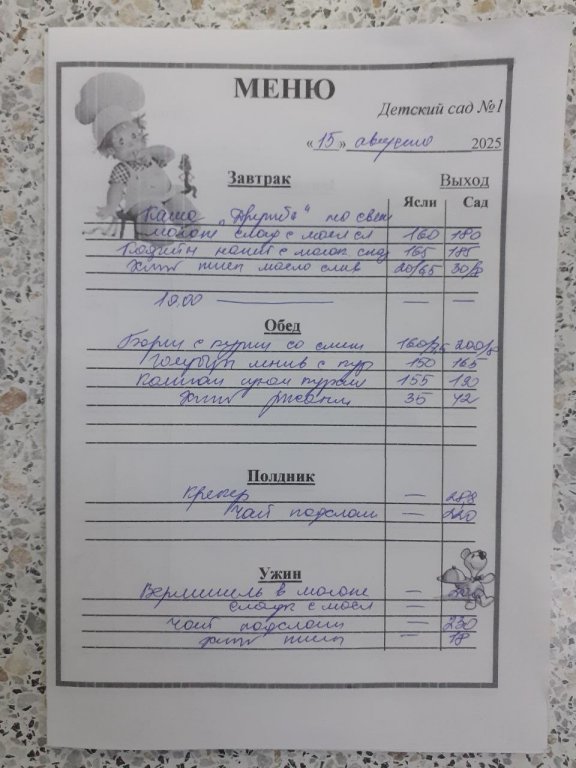 МЕНЮ
Детский сад №1
«15» августа 2025
Завтрак Выход
Ясли Сад
Каша „Дружба" по свеж
молоке слад с маслом сл 160 180
Кофейн напит с молок слад 165 185
Хлеб пшен масло слив 20/5 30/8
10.00 — — —
Обед
Борщ с курин со смет 160/5 200/8
Голубцы ленив с кур 150 165
Компот сухом 155 190
Хлеб ржаной 35 42
Полдник
Крекер —
Чай подслащ — 220
Ужин
Вермишель в молоке —
сладк с масл —
Чай подслащ — 230
Хлеб пшен — 18